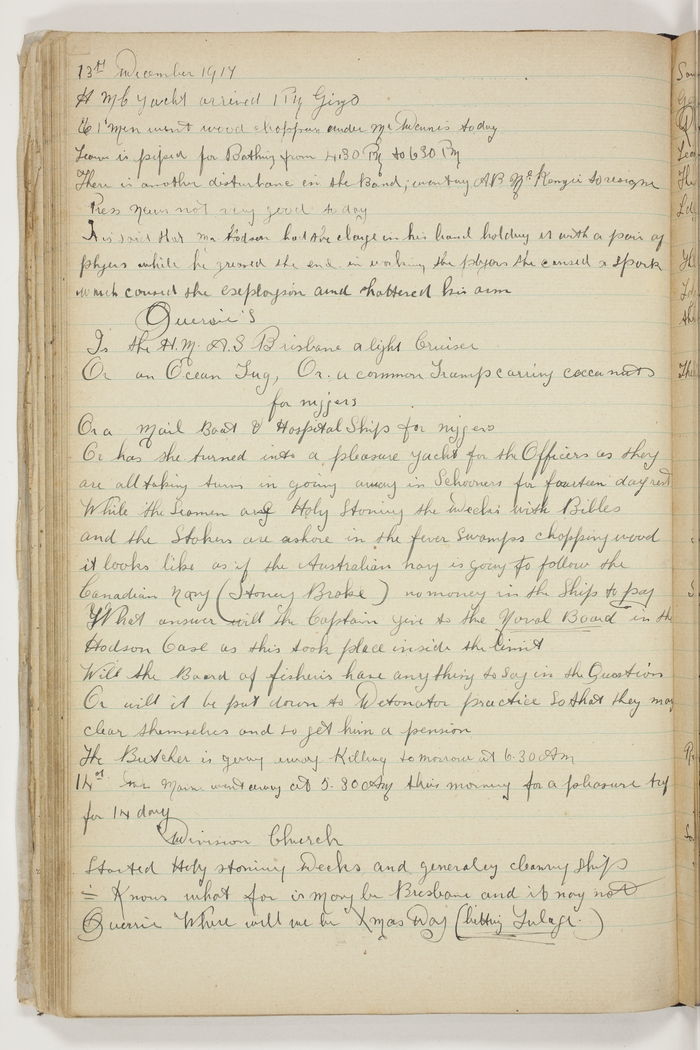 13th December 1917
H M C Yacht arrived 1 PM Gizo
61 Men went wood choppen under Mr Dennis today
Leave is piped for Bathing from 4.30 PM to 6 30 PM
There is another disturbance in the Band, wanting AB McKenzie to resigne
Press news not very good today
It is said that Mr Hodson had the charge in his hand holding it with a pair of
plyers while he the end in working the plyers he caused a spark
which caused the exeployson and shattered his arm
Querrie's
Is the H.M.A.S Brisbane a light Cruiser
Or an Ocean Tug, Or a common Tramp carring cocca nuts
for nijjers
Or a Mail Boat & Hospital Ships for nijjers
Or has she turned into a pleasure yacht for the Officers as they
are all taking turns in going away in Schooners for fourteen day rest
While the Seamen are Holy Stoning the Decks with Bibles
and the Stokers are ashore in the fever swamps chopping wood
it looks like as if the Australian navy is going to follow the
Canadian Navy (Stoney Broke) no money in the Ship to pay
What answer will the Captain give to the Naval Board in the
Hodson Case as this took place inside the limit
Will the Board of fisheris have anything to say in the Question
Or will it be put down to Detonator practice So that they may
clear themselves and so get him a pension
The Butcher is going away Killing tomorrow at 6.30 AM
14th went away at 5.30 AM this morning for a pleasure trip
for 14 days
Division Church
Started Holy stoning Decks and generaley cleaning ship
= Knows what for is may be Bresbane and it may not
Querrie Where will we be Xmas Day (hitting Tulage.)